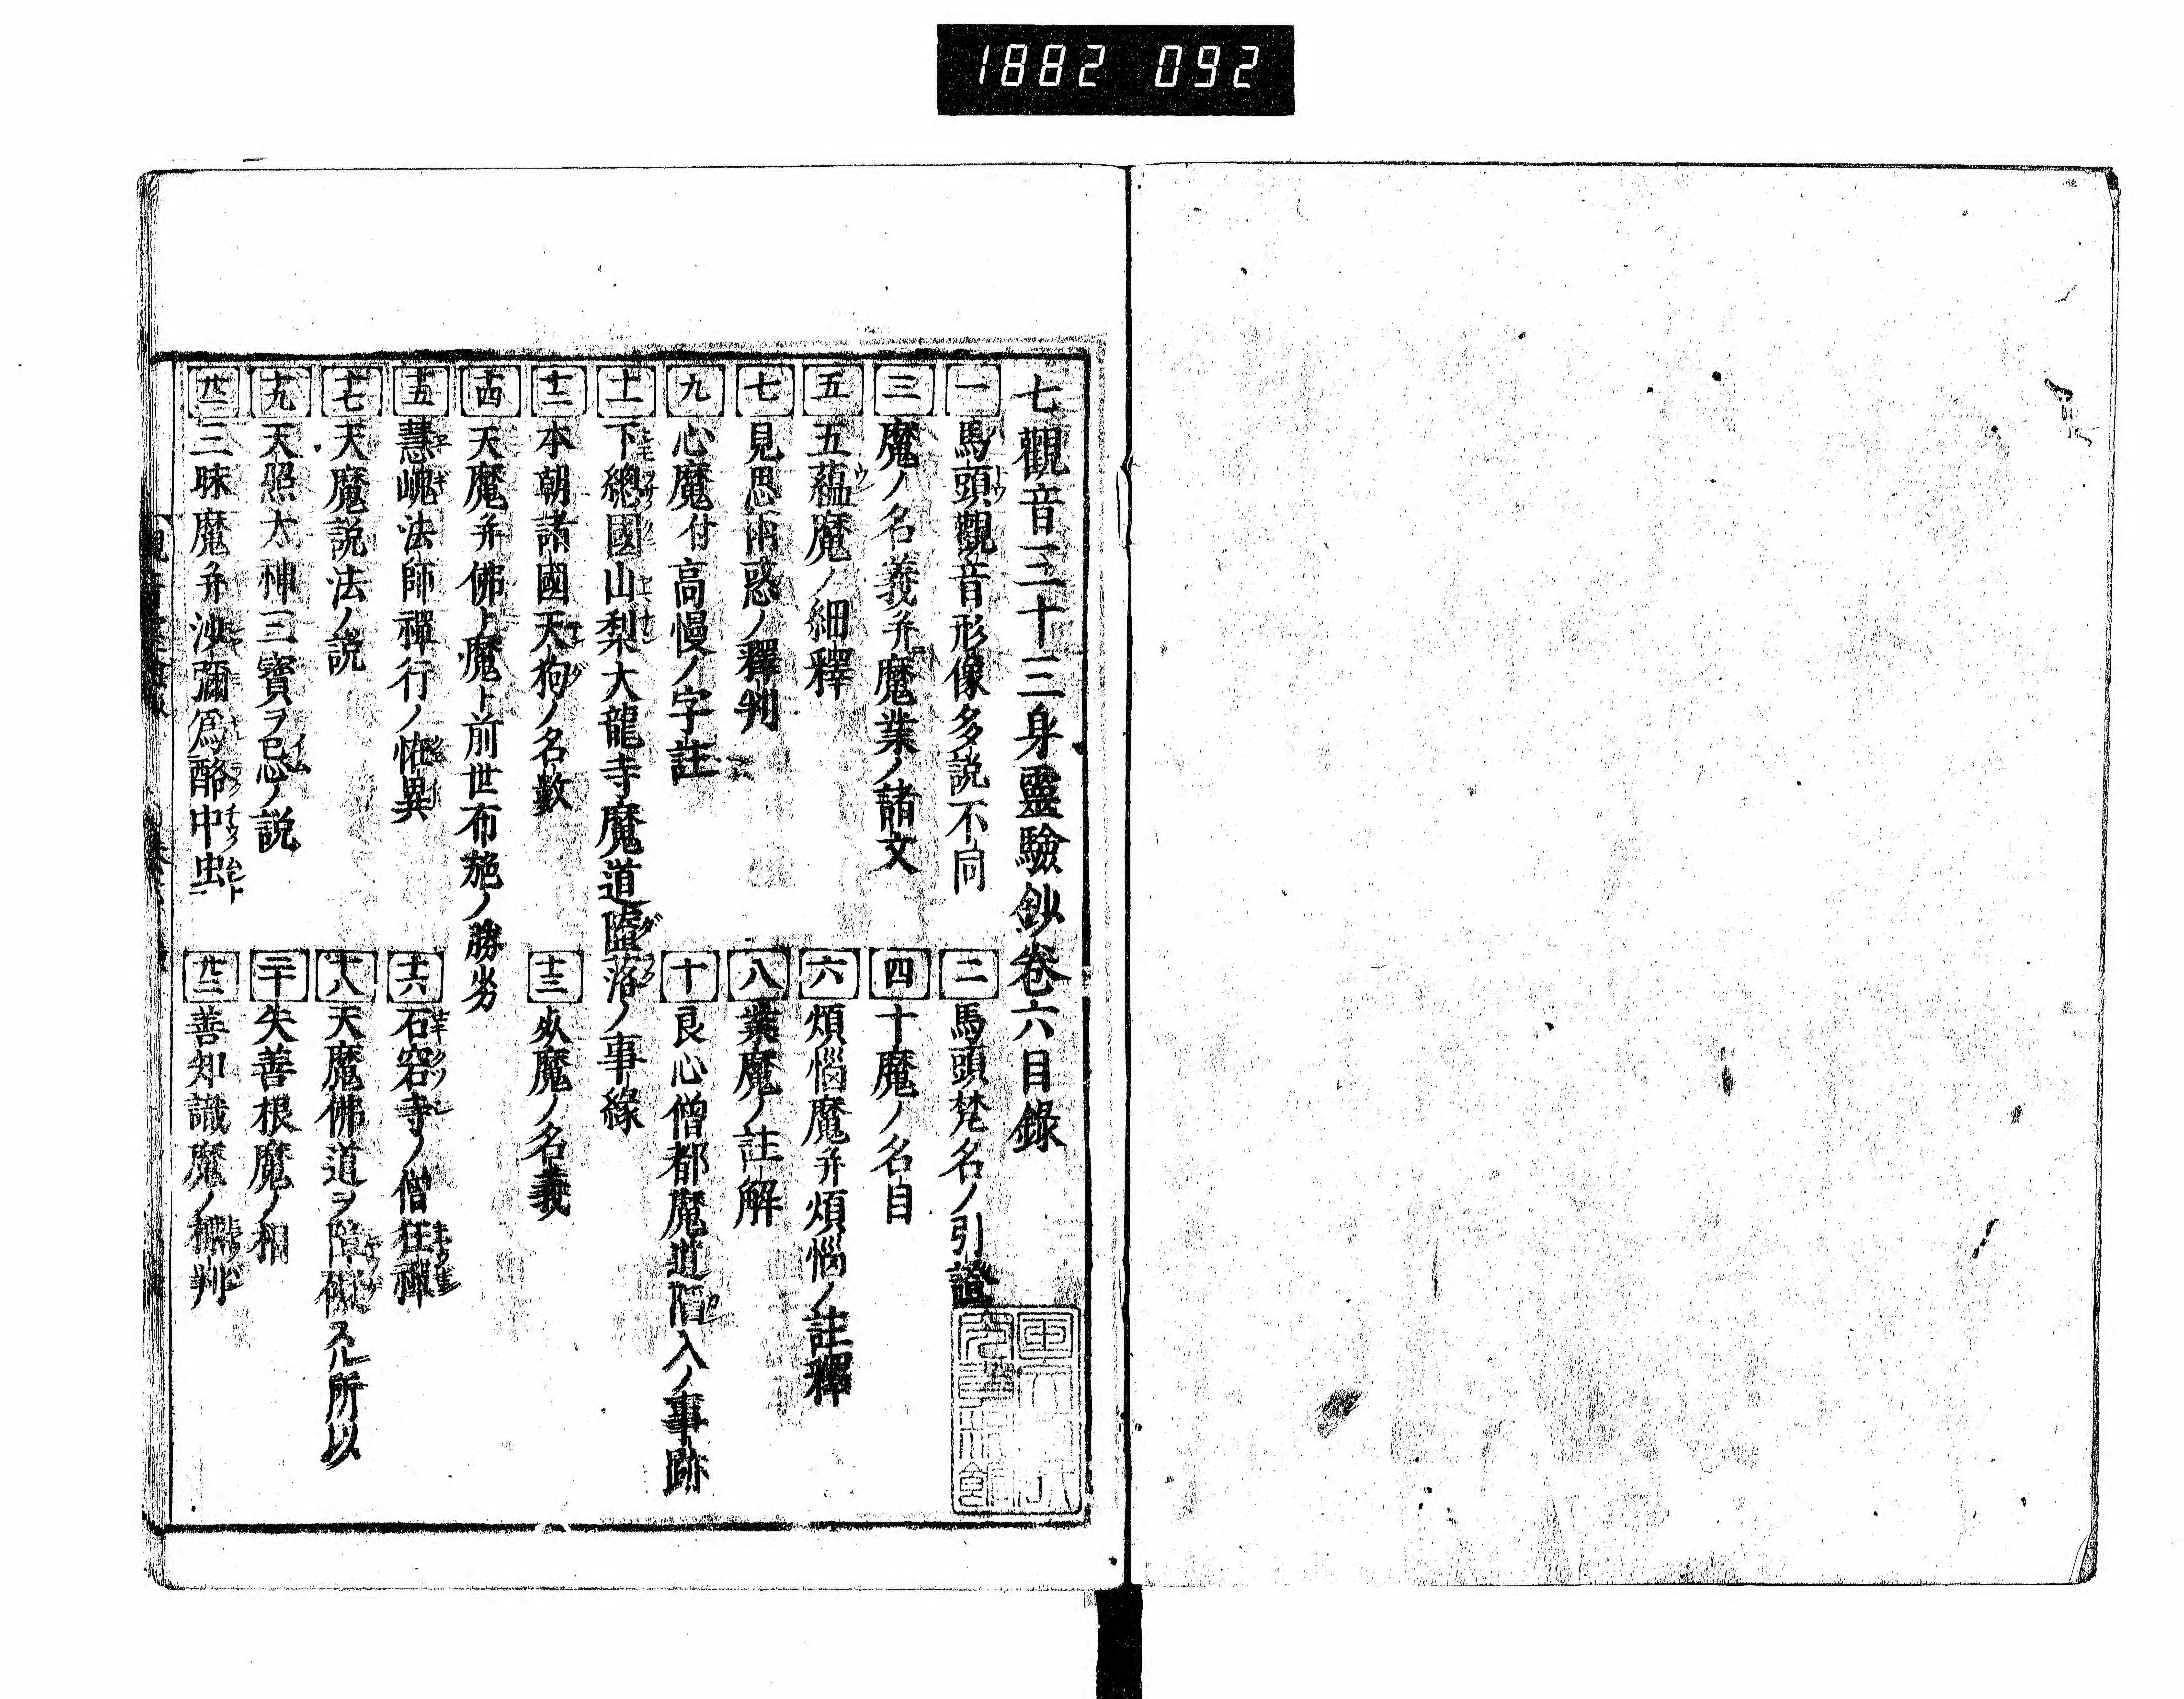 1882 092
七觀音三十三身靈驗鈔卷六目錄
一 馬頭觀音形像多説不同 二 馬頭梵名ノ引證
三 魔ノ名義并魔業ノ諸文 四 十魔ノ名目
五 五蘊魔ノ細釋 六 煩惱魔并煩惱ノ註釋
七 見思兩惑ノ釋判 八 業魔ノ註解
九 心魔付高慢ノ字註 十 良心僧都魔道隨入ノ事跡
十一 下總國山梨大龍寺魔道墮落ノ事緣
十二 本朝諸國天狗ノ名數 十三 𣦸魔ノ名義
十四 天魔并佛ト魔ト前世布施ノ勝劣
十五 慧嵬法師禪行ノ恠異 十六 石窟寺ノ僧狂禪
十七 天魔説法ノ説 十八 天魔佛道ヲ障礙スル所以
十九 天照大神三寶ヲ忌ノ説 二十 失善根魔ノ相
廿一 三昧魔并沙彌爲酪中虫 廿二 善知識魔ノ相判